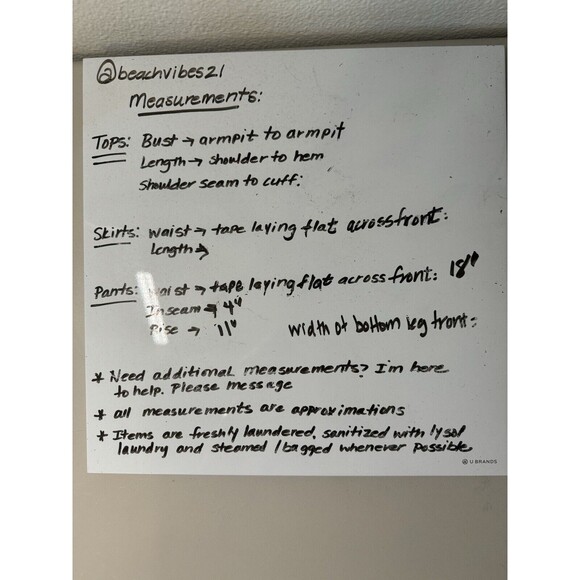 @beachvibes21
Measurements:
Tops: Bust → armpit to armpit
Length → shoulder to hem
Shoulder seam to cuff:
Skirts: waist → tape laying flat across front:
Length →
Pants: waist → tape laying flat across front: 18"
Inseam → 4"
Rise → 11"
width of bottom leg front:
* Need additional measurements? I'm here
to help. Please message
* all measurements are approximations
* Items are freshly laundered, sanitized with lysol
laundry and steamed / bagged whenever possible
U BRANDS